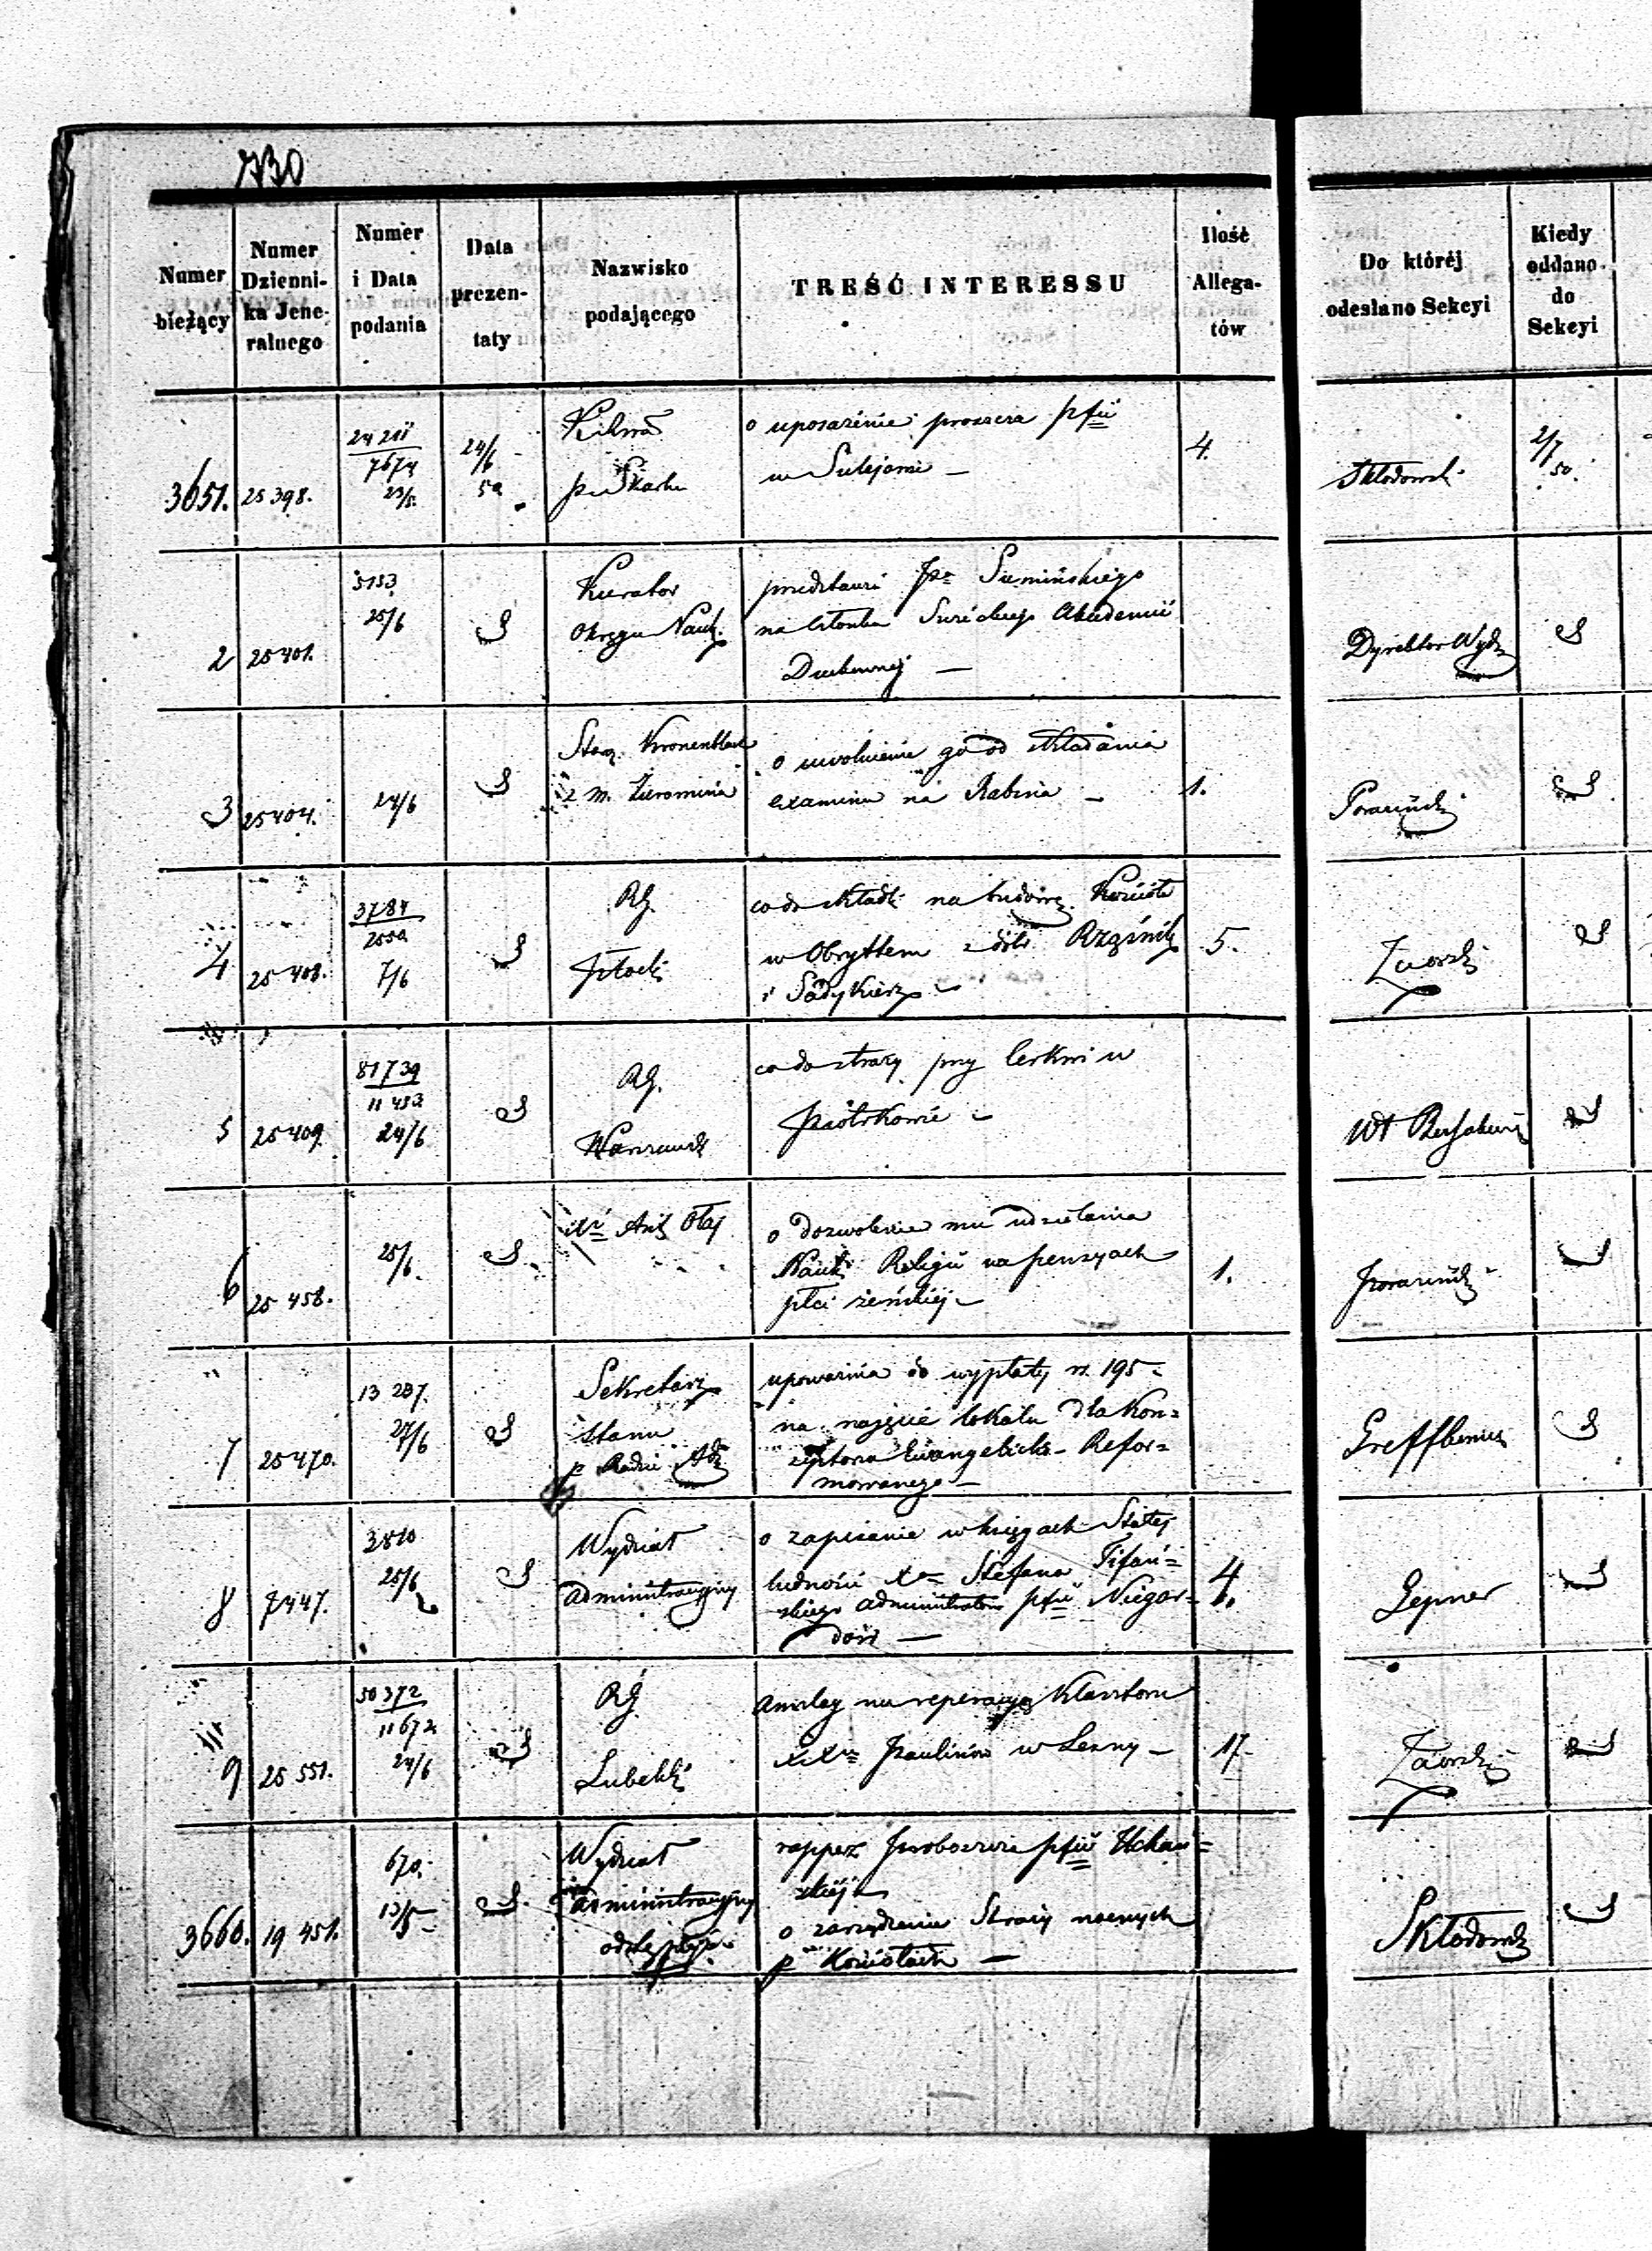 730
Numer bieżący
Numer Dzienni- ka Jene- ralnego
Numer i Data podania
Data prezen- taty
Nazwisko podającego
TREŚĆ INTERESSU
Ilość Allega- tów
Do któréj odesłano Sekcyi
Kiedy oddano do Sekcyi
3651. 25398.
7674
23/5.
24/6
50
Skarbu
o uposażenie proszcza pfii
w Sulejowie —
4.
Skłodowski
2/7
50.
2 25401.
5153
25/6
Kurator
Okręgu Nauk.
przedstawi Pa Siemińskiego
na Członka Akademii
Duchownej —
Dyrektor Wydz
3 25404.
24/6
Kronenblat
z m.
o uwolnienie go od składania
examinu na Rabina —
1.
4 25408.
3784
2550
7/6
RG.
Płocki
co do składki na budowę Kościoła
w Obrytem z dóbr Rząśnik
i Sadykierz —
5.
Zaorski
5 25409.
81739
11453
24/6
RG.
Warszawski
co do straży przy Cerkwi w
Piotrkowie —
6 25458.
25/6.
o dozwolenie mu udzielania
Nauki Religii na pensyach
płci żeńskiej —
1.
7 25470.
13237.
27/6
Sekretarz
Stanu
p Radzie Adm
upoważnia do wypłaty rs. 195 -
na najęcie lokalu dla Kon=
systorza Ewangelicko-Refor=
mowanego —
8 7447.
3810
25/6
Wydział
administracyjny
o zapisanie w księgach Stałej
ludności Xa Stefana Tifań=
skiego administratora pfii Niegar=
dów —
4
Lepner
9 25551.
50372
11672
24/6
RG
Lubelski
anszlag na reperacyą Klasztoru
XXów Paulinów w Leśny —
17.
Zaorski
3660. 19451.
670.
13/5
Wydział
administracyjny
rapport Proboszcza pfii Uchań=
skiej
o zarządzenie Straży nocnych
p Kościołach —
Skłodowski